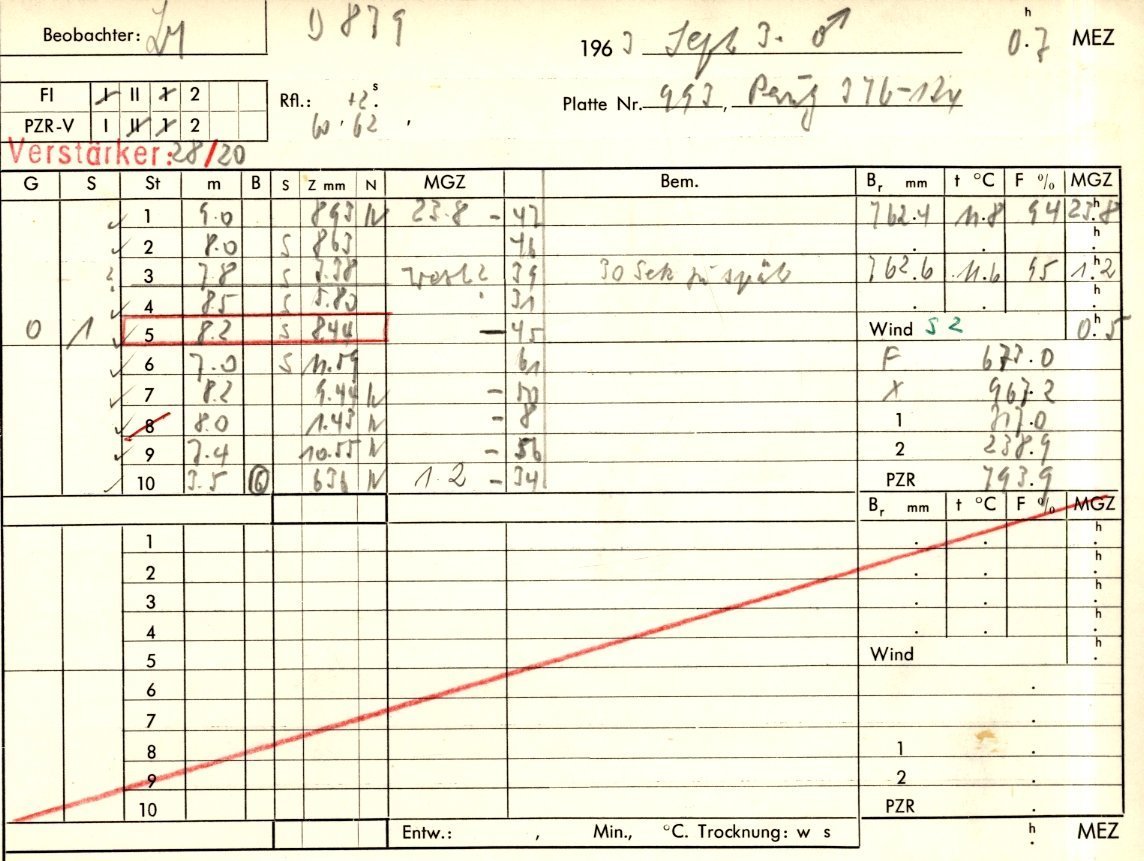 Beobachter:
D 879
1963 Sept 3. ♂ 0.7 h MEZ
FI I II 1 2
PZR-V I II 1 2
Rfl.: +2 s.
W. 62 ,
Platte Nr. 993, 376-12x
Verstärker: 28/20
G S St m B S Z mm N MGZ Bem. Br mm t °C F % MGZ
1 9.0 893 N 23.8 - 47 762.4 11.8 94 23.8 h
2 8.0 S 863 46 . . h
3 7.8 S 7.38 ? 39 30 Sek zu spät 762.6 11.6 95 1.2 h
4 8.5 S 5.80 31 . . h
0 1 5 8.2 S 8.44 - 45 Wind S 2 0.5 h
6 7.0 S 11.59 61 F 673.0
7 8.2 9.44 N - 50 X 967.2
8 8.0 1.43 N - 8 1 317.0
9 7.4 10.55 N - 56 2 238.9
10 3.5 6 636 N 1.2 - 34 PZR 793.9
Br mm t °C F % MGZ
1 . . h
2 . . h
3 . . h
4 . . h
5 Wind h
6 .
7 .
8 1 .
9 2 .
10 PZR .
Entw.: , Min., °C. Trocknung: w s h MEZ